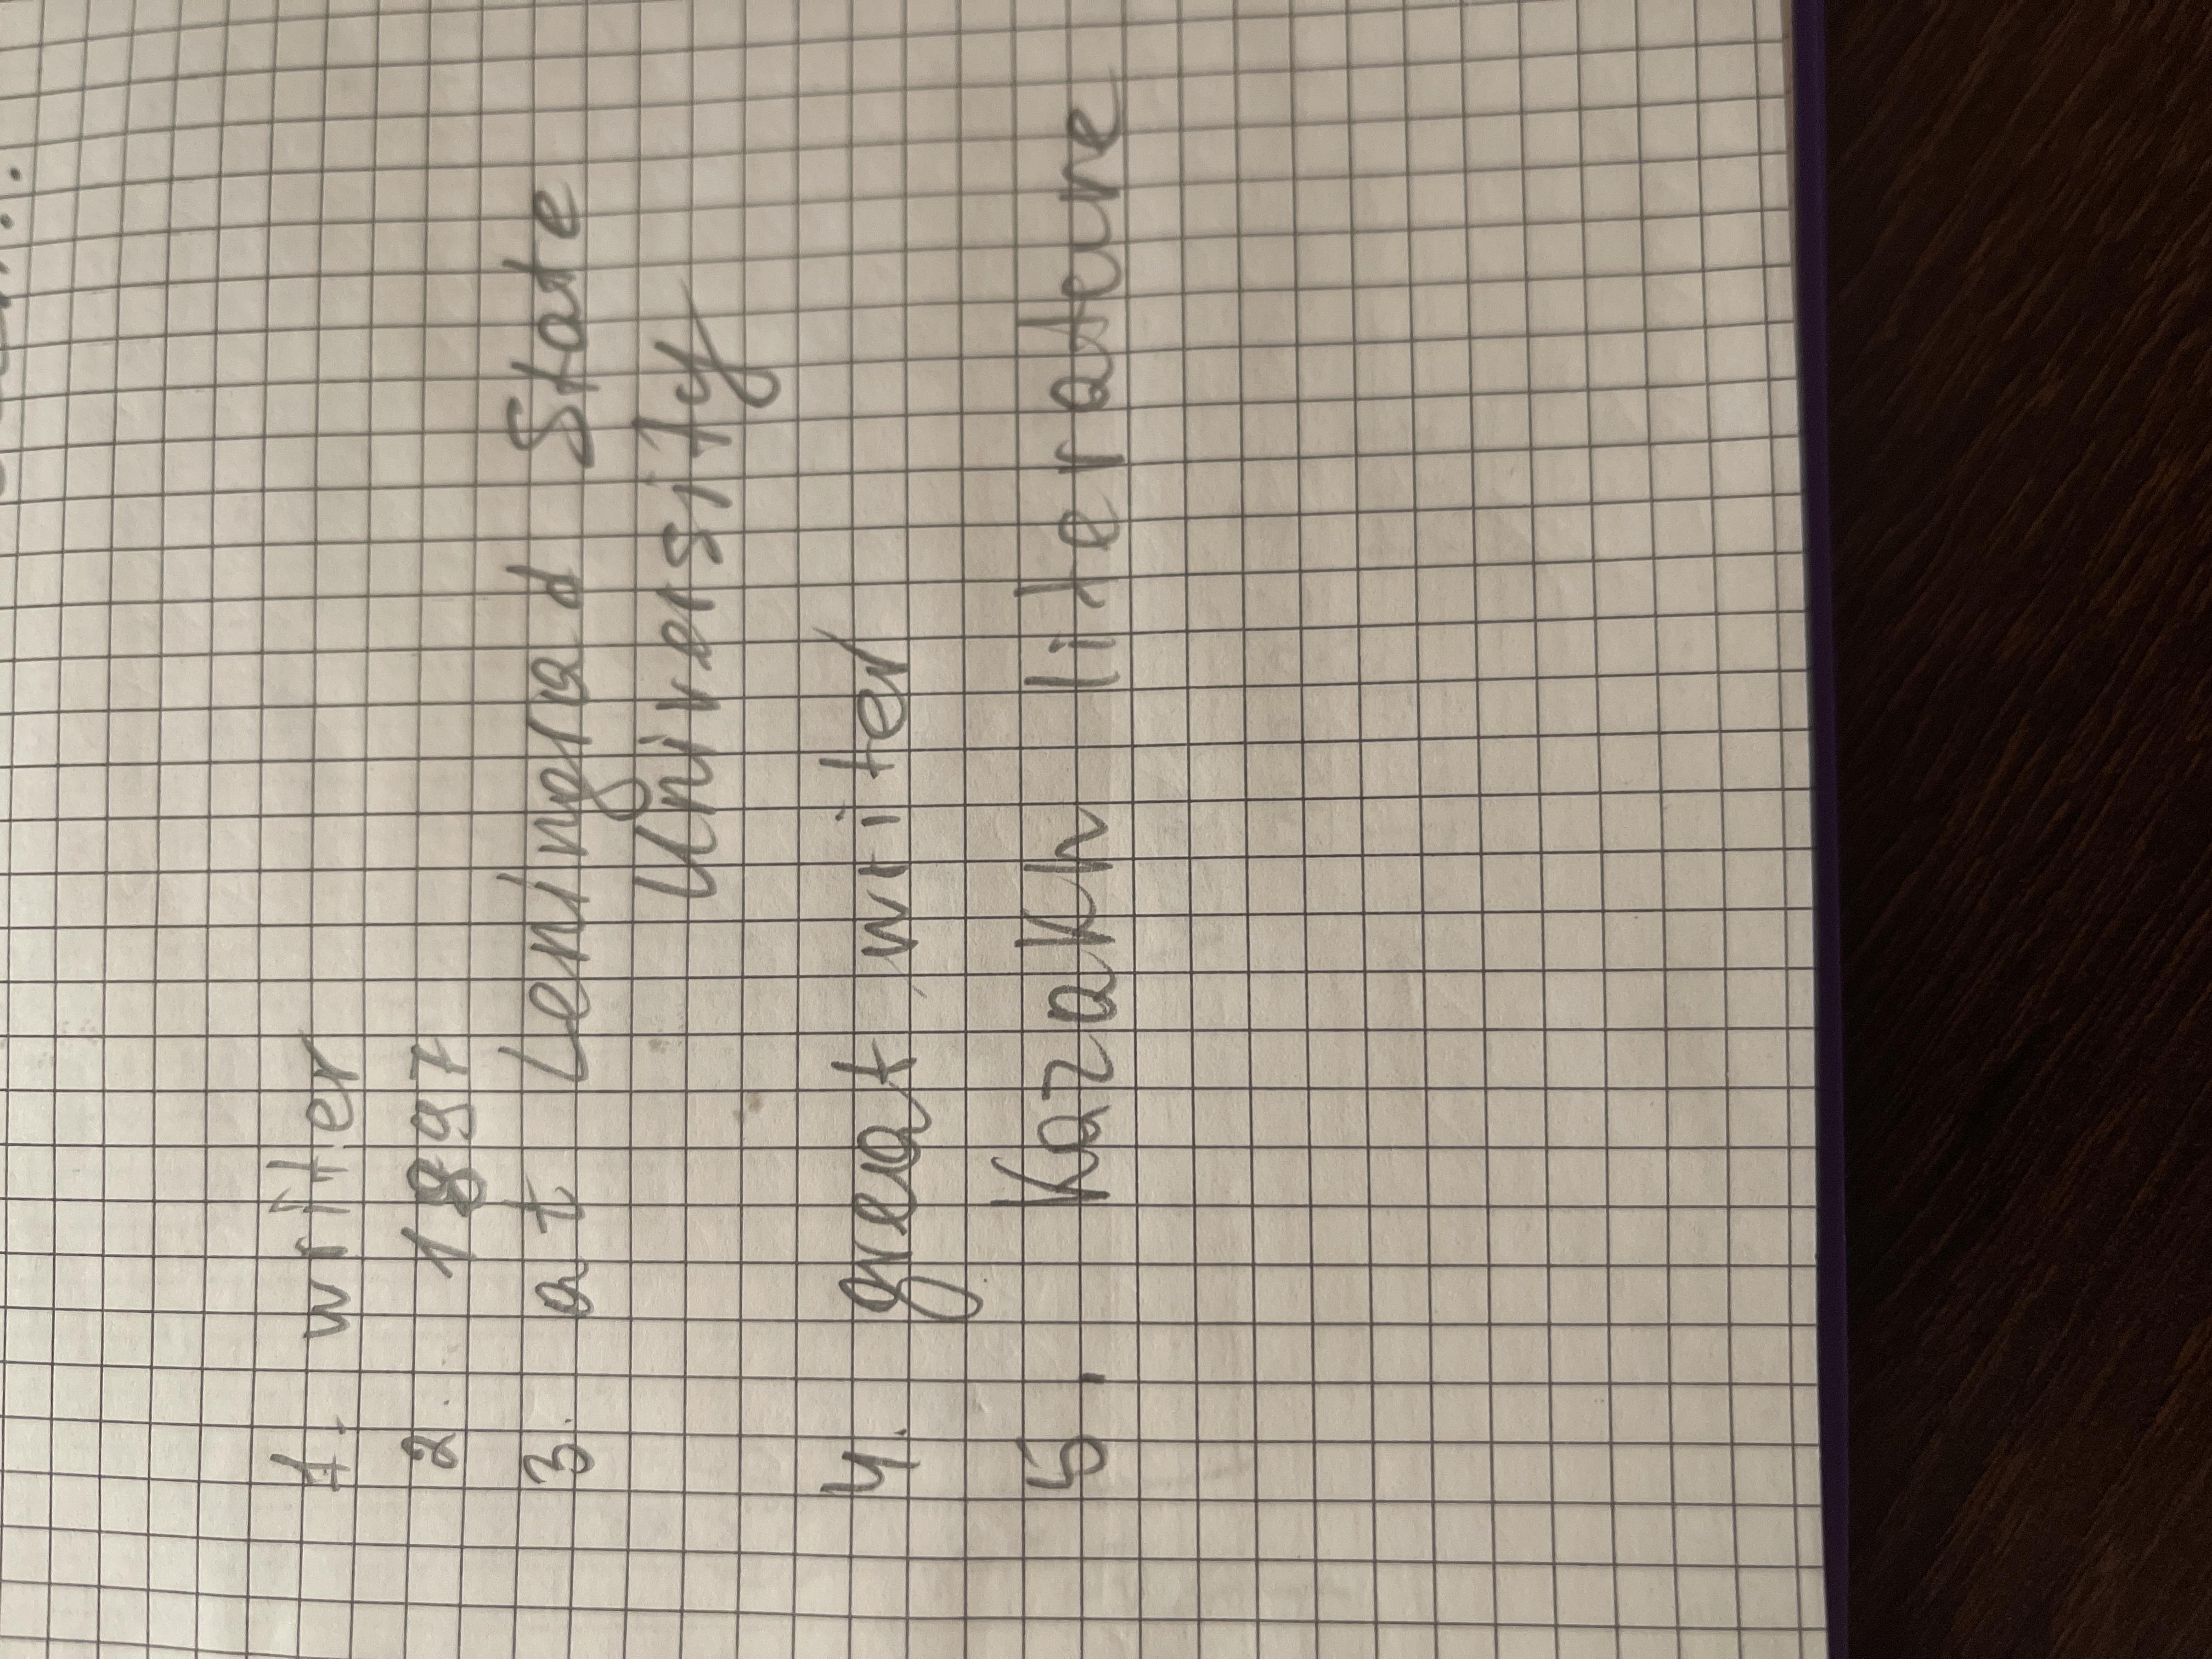 1. writer
2. 1897
3. at Leningrad State
University
4. great writer
5. Kazakh literature